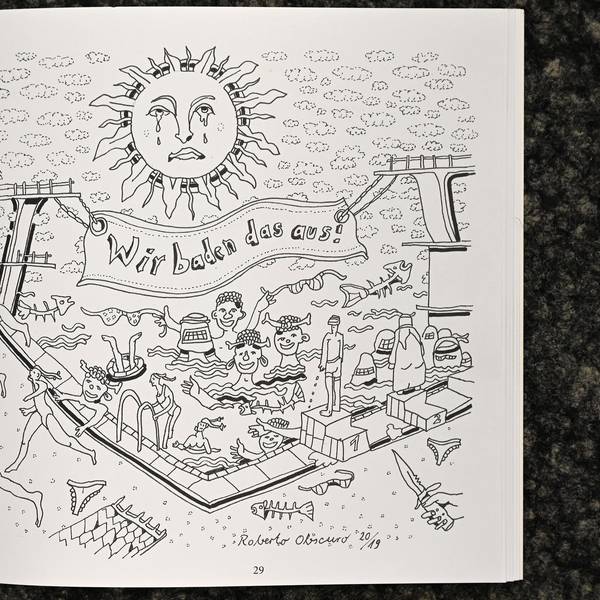 Wir baden das aus!
1
3
Roberto Obscuro 20/19
29